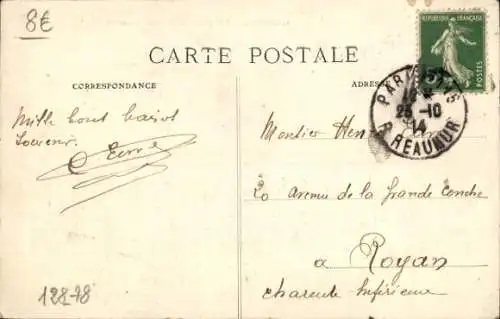 8€
CARTE POSTALE
CORRESPONDANCE
ADRESSE
REPUBLIQUE FRANÇAISE
POSTES
PARIS
25 -10
R. REAUMUR
Mille bons baisers
Souvenir
Monsieur Hen
20 Avenue de la grande Conche
a Royan
Charente Inférieure
128-78